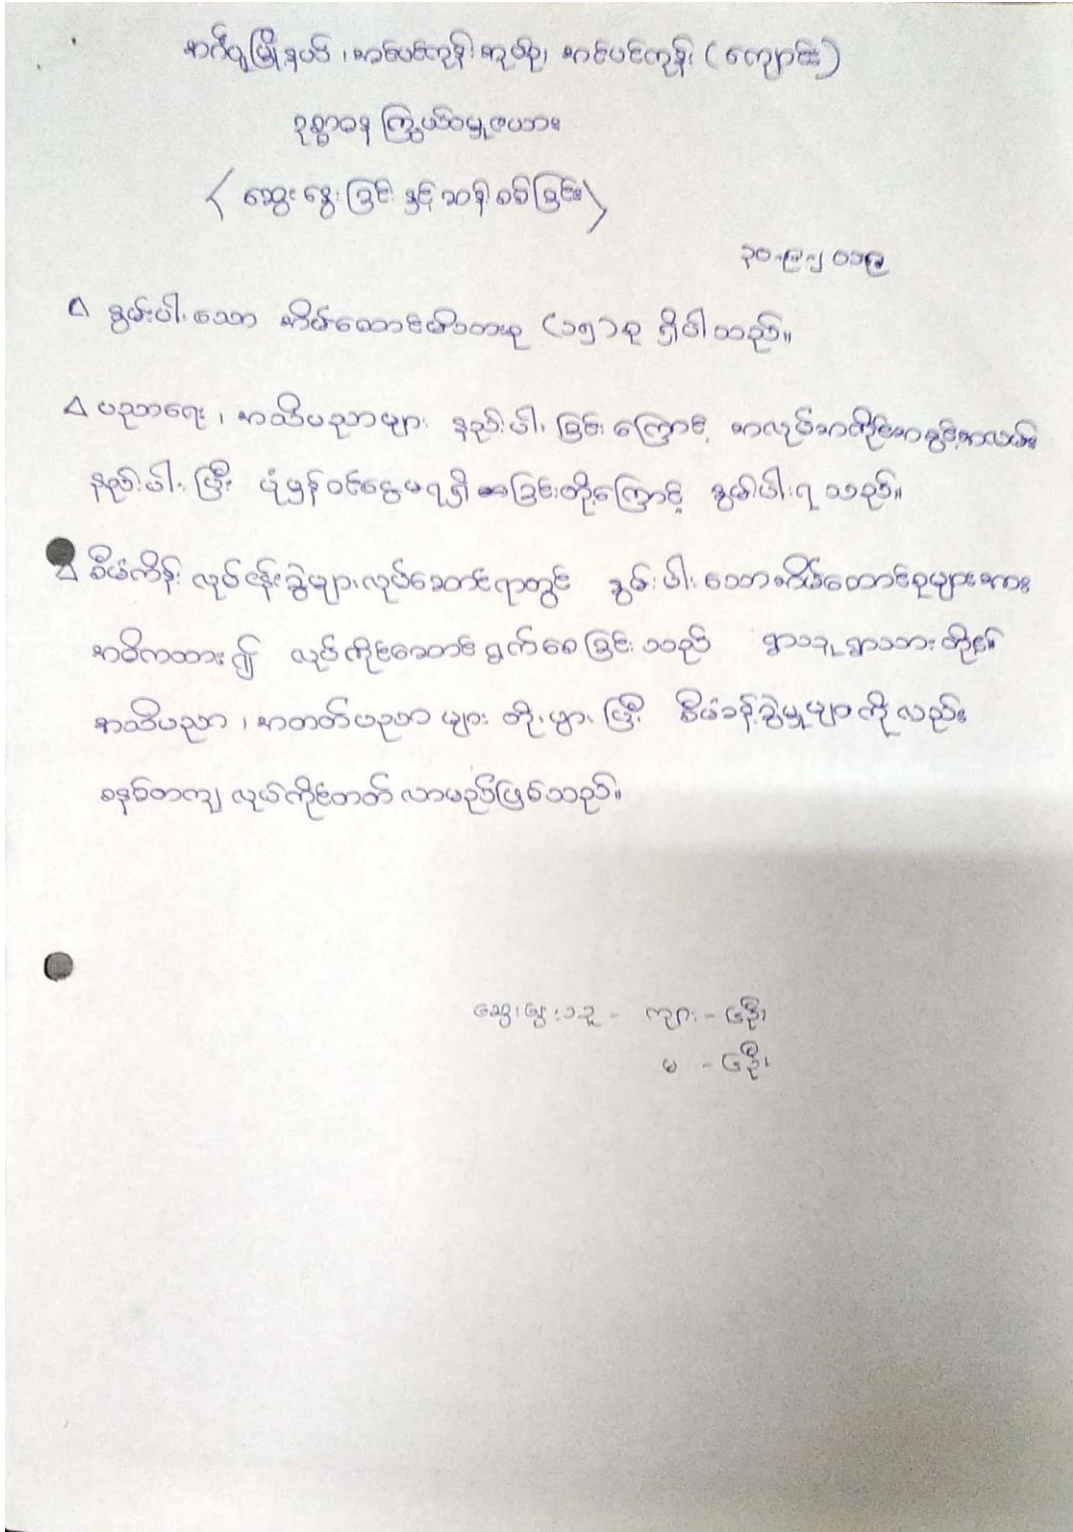 အင်္ဂပူမြို့နယ်၊ အင်ပင်ကုန်းအုပ်စု၊ အင်ပင်ကုန်း (ကျောင်း)
ဥစ္စာဓန ကြွယ်ဝမှုဇယား
〈 ဆွေးနွေးခြင်း နှင့် ဆန်းစစ်ခြင်း 〉
၃၀-၉-၂၀၁၉
∆ နွမ်းပါးသော အိမ်ထောင်မိသားစု (၁၅) စု ရှိပါသည်။
∆ ပညာရေး၊ အသိပညာများ နည်းပါးခြင်းကြောင့် အလုပ်အကိုင်အခွင့်အလမ်း
နည်းပါးပြီး ပုံမှန်ဝင်ငွေမရရှိ ခြင်းတို့ကြောင့် နွမ်းပါးရသည်။
∆ စီမံကိန်း လုပ်ငန်းခွဲများလုပ်ဆောင်ရာတွင် နွမ်းပါးသောအိမ်ထောင်စုများအား
အဓိကထား၍ လုပ်ကိုင်ဆောင်ရွက်စေခြင်းသည် ရွာသူရွာသားတို့၏
အသိပညာ၊ အတတ်ပညာများ တိုးပွားပြီး စီမံခန့်ခွဲမှုများကိုလည်း
စနစ်တကျ လုပ်ကိုင်တတ်လာမည်ဖြစ်သည်။
ဆွေးနွေးသူ - ကျား - ၄ဦး
မ - ၄ဦး